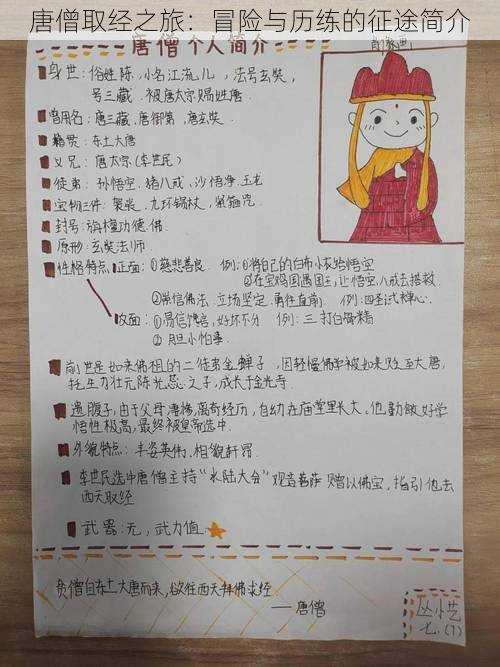 唐僧取经之旅：冒险与历练的征途简介
唐僧个人简介
身世：俗姓陈，小名江流儿，法号玄奘，
号三藏，被唐太宗赐姓唐。
曾用名：唐三藏、唐御弟、唐玄奘
籍贯：东土大唐
义兄：唐太宗（李世民）
徒弟：孙悟空、猪八戒、沙悟净、玉龙
宝物三件：袈裟、九环锡杖、紧箍咒
封号：旃檀功德佛
原形：玄奘法师
性格特点：正面：①慈悲善良 例：①将自己的白布小衣给悟空
②在宝乌国遇国王，让悟空、八戒去搭救
②崇信佛法、立场坚定、勇往直前 例：四圣试禅心
反面：①易信谗言，好坏不分 例：三打白骨精
②胆小怕事
前世是如来佛祖的二徒弟金蝉子，因轻慢佛学被如来贬至大唐，
托生为状元陈光蕊之子，成长于金光寺
遗腹子，由于父母凄惨、离奇经历，自幼在庙堂里长大，他勤敏好学
悟性极高，最终被皇帝选中
外貌特点：丰姿英伟，相貌轩昂
李世民选中唐僧主持“水陆大会”观音菩萨赠以佛宝，指引他去
西天取经
武器：无，武力值
贫僧自东土大唐而来，欲往西天拜佛求经
——唐僧
七.(1)